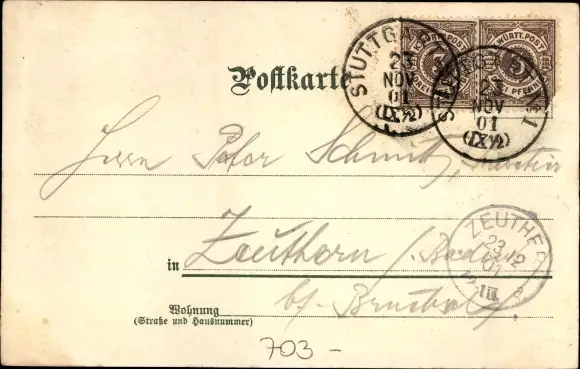 K. WÜRTT. POST
WÜRTT. POST
3 3
DREI PFENNIG
STUTTGART
23
NOV
01
(IX½)
STUTTGART No 1
23
NOV
01
(IX½)
Postkarte
Herrn Peter Schmitt,
ZEUTHERN
23 12
01
in Zeuthern / Baden
b/. Bruchsal
Wohnung
(Straße und Hausnummer)
703 -